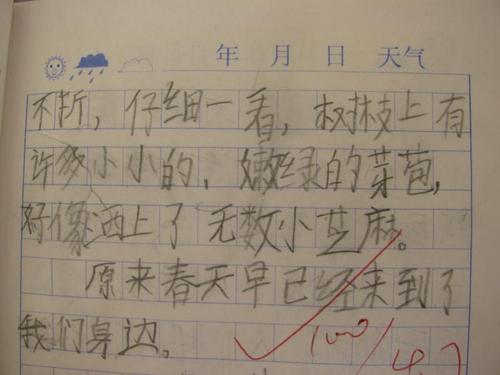 年 月 日 天气
不折，仔细一看，树枝上有
许多小小的，嫩绿的芽苞，
好像洒上了无数小芝麻。
原来春天早已经来到了
我们身边。
100/4.7